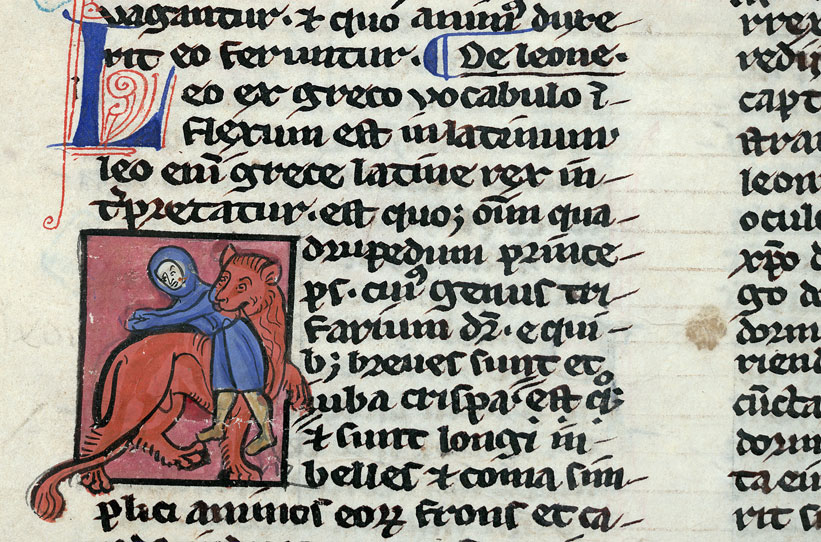 vagantur. ⁊ quo animꝰ duxe
rit eo feruntur. De leone.
Leo ex greco vocabulo ī
flexum est in latinum
leo enī grece latine rex in
t̄pretatur. est quoqꝫ oīm qua
drupedum prince
ps. cuiꝰ genus tri
farium dr̄. e qui
bꝫ breues sunt et
iuba crispa est
⁊ sunt longi in
belles ⁊ coma sim
plici animos eoꝝ frons et ca
rrex
redi
capt
stra
leon
oculo
xp̄o d
go d
dorm
riend
cūcta
dorm
ta ei
rit s